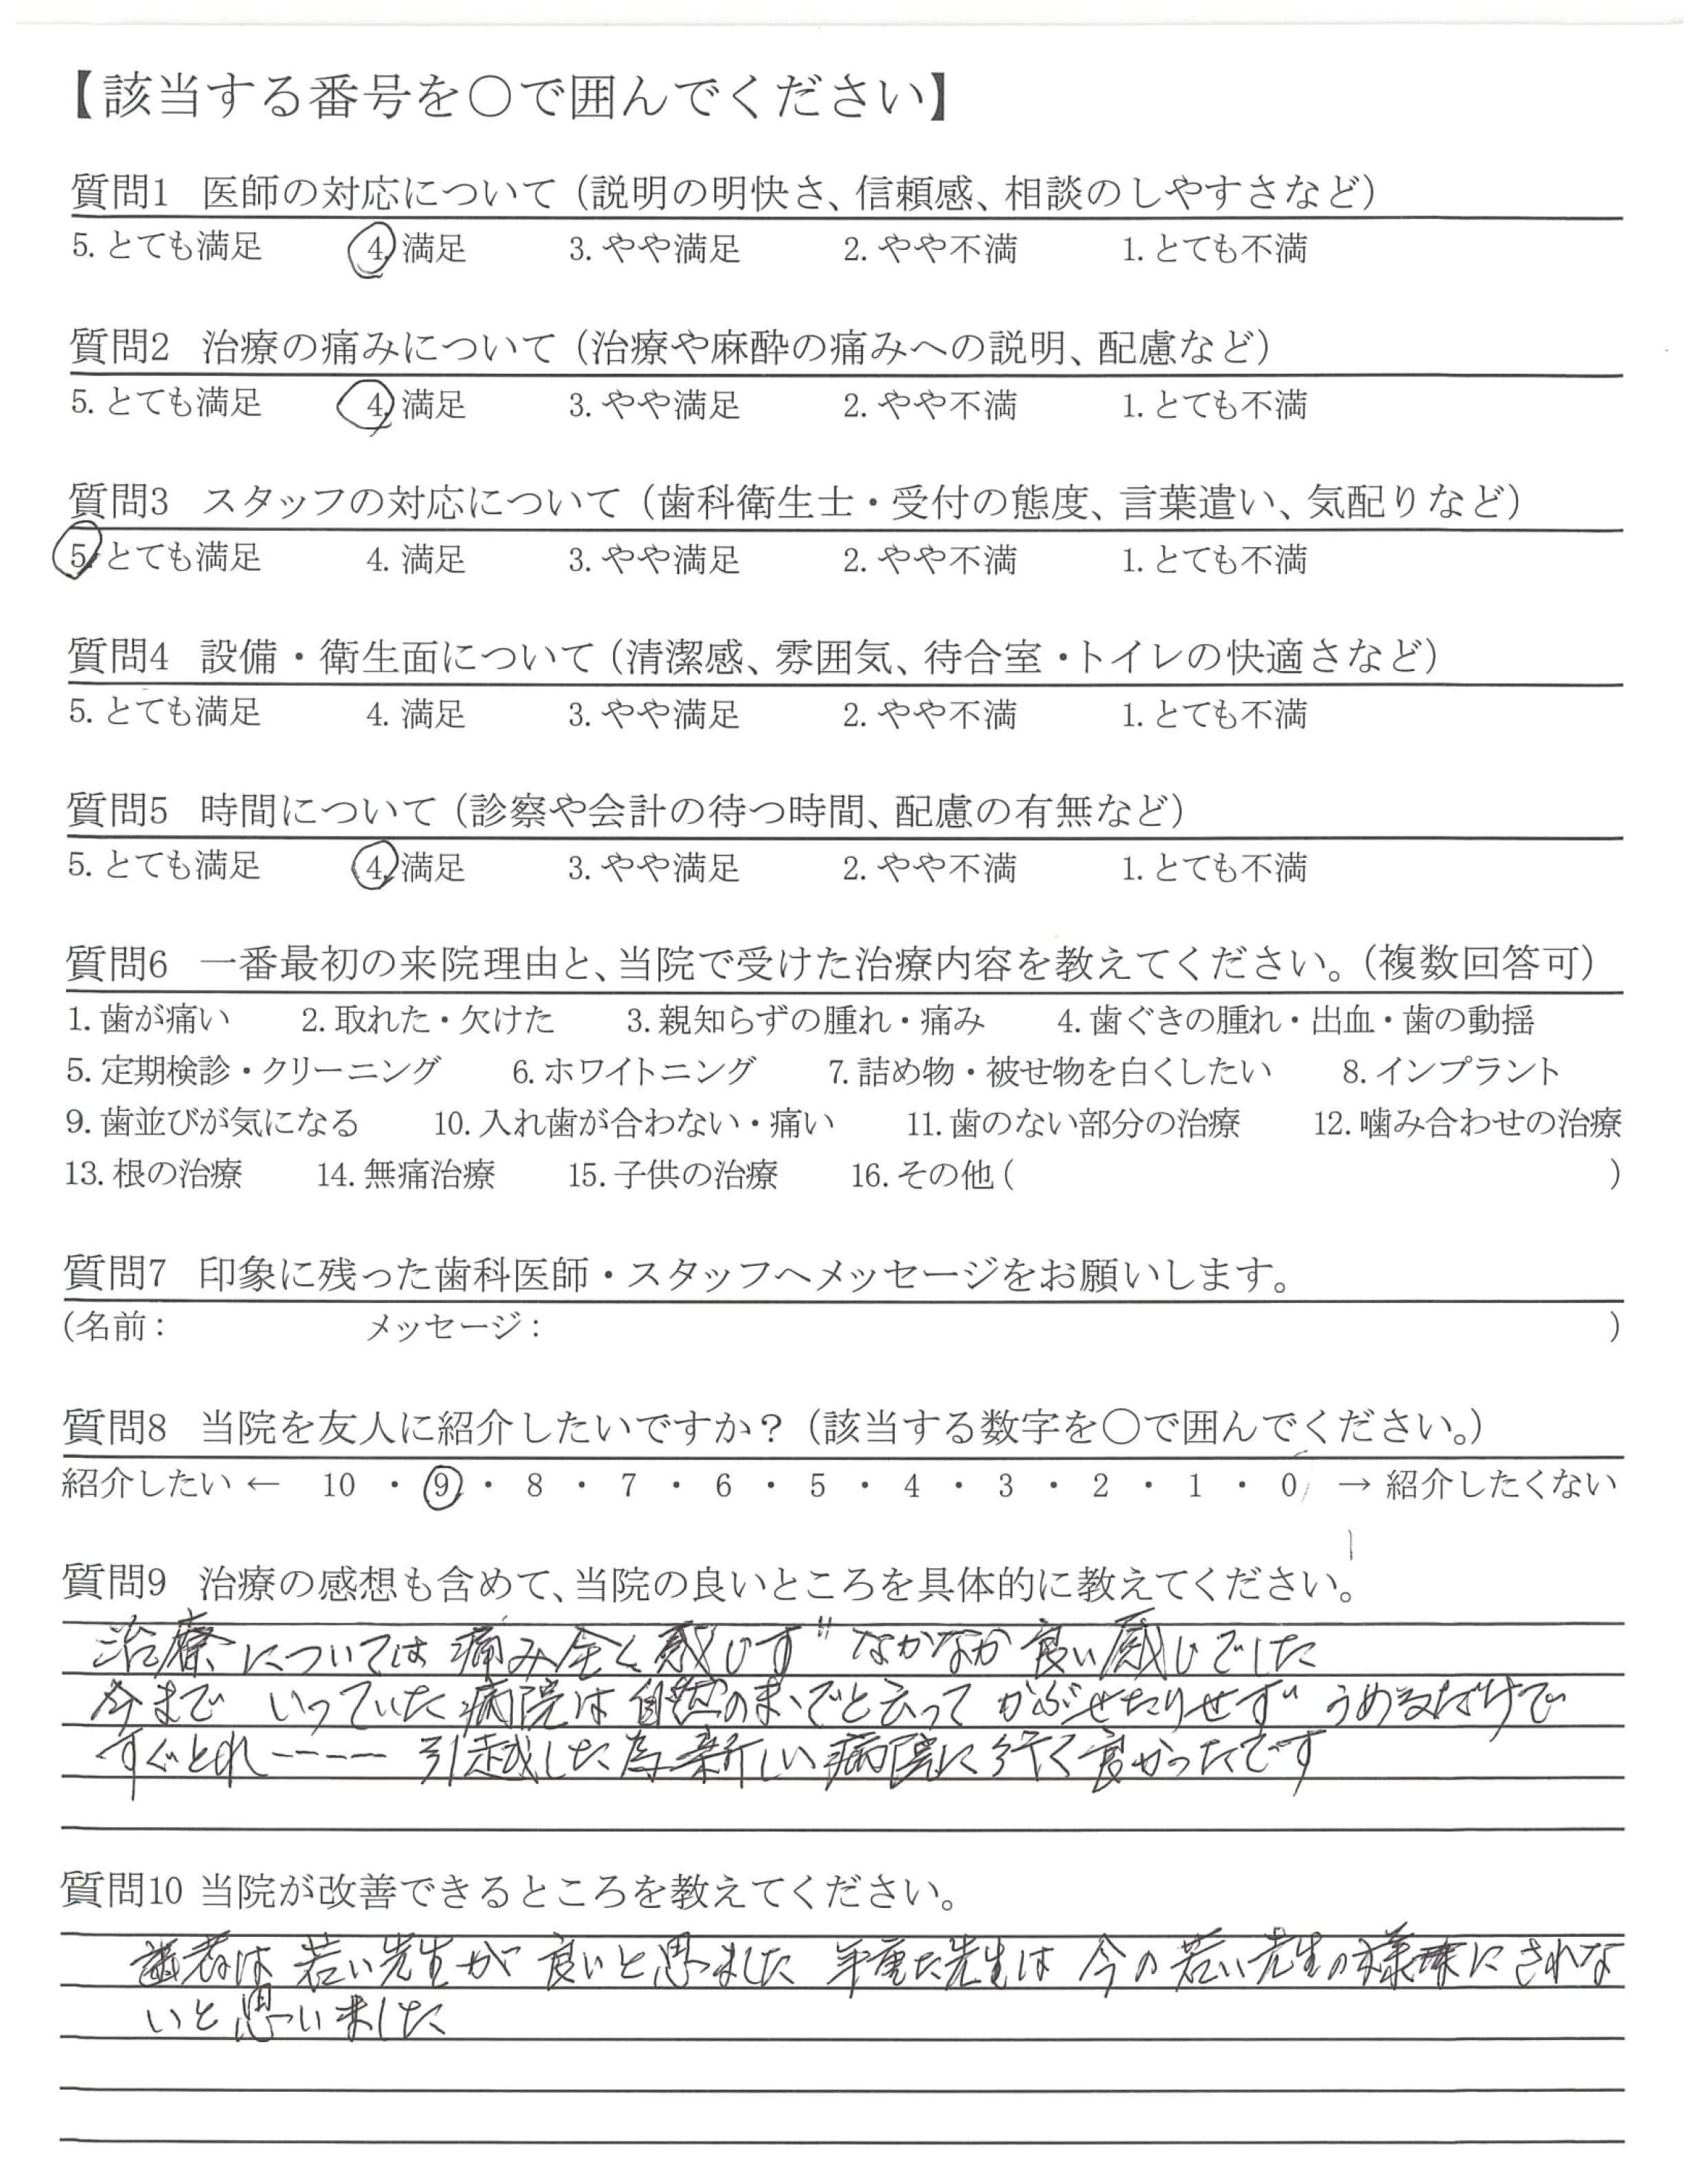 【該当する番号を○で囲んでください】
質問1 医師の対応について（説明の明快さ、信頼感、相談のしやすさなど）
5. とても満足 4. 満足 3. やや満足 2. やや不満 1. とても不満
質問2 治療の痛みについて（治療や麻酔の痛みへの説明、配慮など）
5. とても満足 4. 満足 3. やや満足 2. やや不満 1. とても不満
質問3 スタッフの対応について（歯科衛生士・受付の態度、言葉遣い、気配りなど）
5. とても満足 4. 満足 3. やや満足 2. やや不満 1. とても不満
質問4 設備・衛生面について（清潔感、雰囲気、待合室・トイレの快適さなど）
5. とても満足 4. 満足 3. やや満足 2. やや不満 1. とても不満
質問5 時間について（診察や会計の待つ時間、配慮の有無など）
5. とても満足 4. 満足 3. やや満足 2. やや不満 1. とても不満
質問6 一番最初の来院理由と、当院で受けた治療内容を教えてください。（複数回答可）
1. 歯が痛い 2. 取れた・欠けた 3. 親知らずの腫れ・痛み 4. 歯ぐきの腫れ・出血・歯の動揺
5. 定期検診・クリーニング 6. ホワイトニング 7. 詰め物・被せ物を白くしたい 8. インプラント
9. 歯並びが気になる 10. 入れ歯が合わない・痛い 11. 歯のない部分の治療 12. 噛み合わせの治療
13. 根の治療 14. 無痛治療 15. 子供の治療 16. その他（ ）
質問7 印象に残った歯科医師・スタッフへメッセージをお願いします。
（名前： メッセージ： ）
質問8 当院を友人に紹介したいですか？（該当する数字を○で囲んでください。）
紹介したい ← 10 ・ 9 ・ 8 ・ 7 ・ 6 ・ 5 ・ 4 ・ 3 ・ 2 ・ 1 ・ 0 → 紹介したくない
質問9 治療の感想も含めて、当院の良いところを具体的に教えてください。
治療については 痛み全く感じず なかなか 良い感じでした
今まで いっていた病院は自然のまゝでと云って かぶせたりせず うめるだけで
すぐとれ----- 引越した為新しい病院に行く良かったです
質問10 当院が改善できるところを教えてください。
若い先生が 良いと思ました 年重た先生は 今の若い先生の様にされな
いと思いました